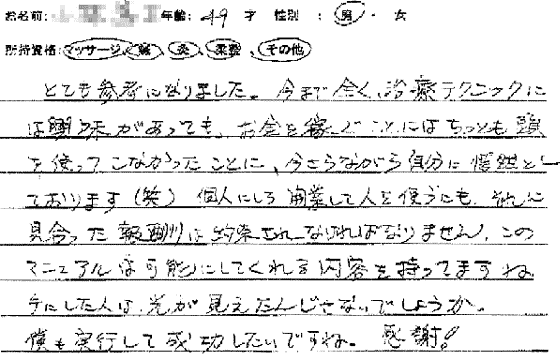 お名前: 年齢: 49 才 性別 : 男 ・ 女
所持資格:マッサージ、鍼、灸、柔整、その他
とても参考になりました。今まで全く、治療テクニックに
は興味があっても、お金を稼ぐことにはちっとも頭
を使ってこなかったことに、今さらながら自分に愕然とし
ております(笑) 個人にしろ開業して人を使うにも、それに
見合った報酬は約束されなければなりません、この
マニュアルは可能にしてくれる内容を持ってますね
手にした人は、光が見えたんじゃないでしょうか。
僕も実行して成功したいですね。感謝!